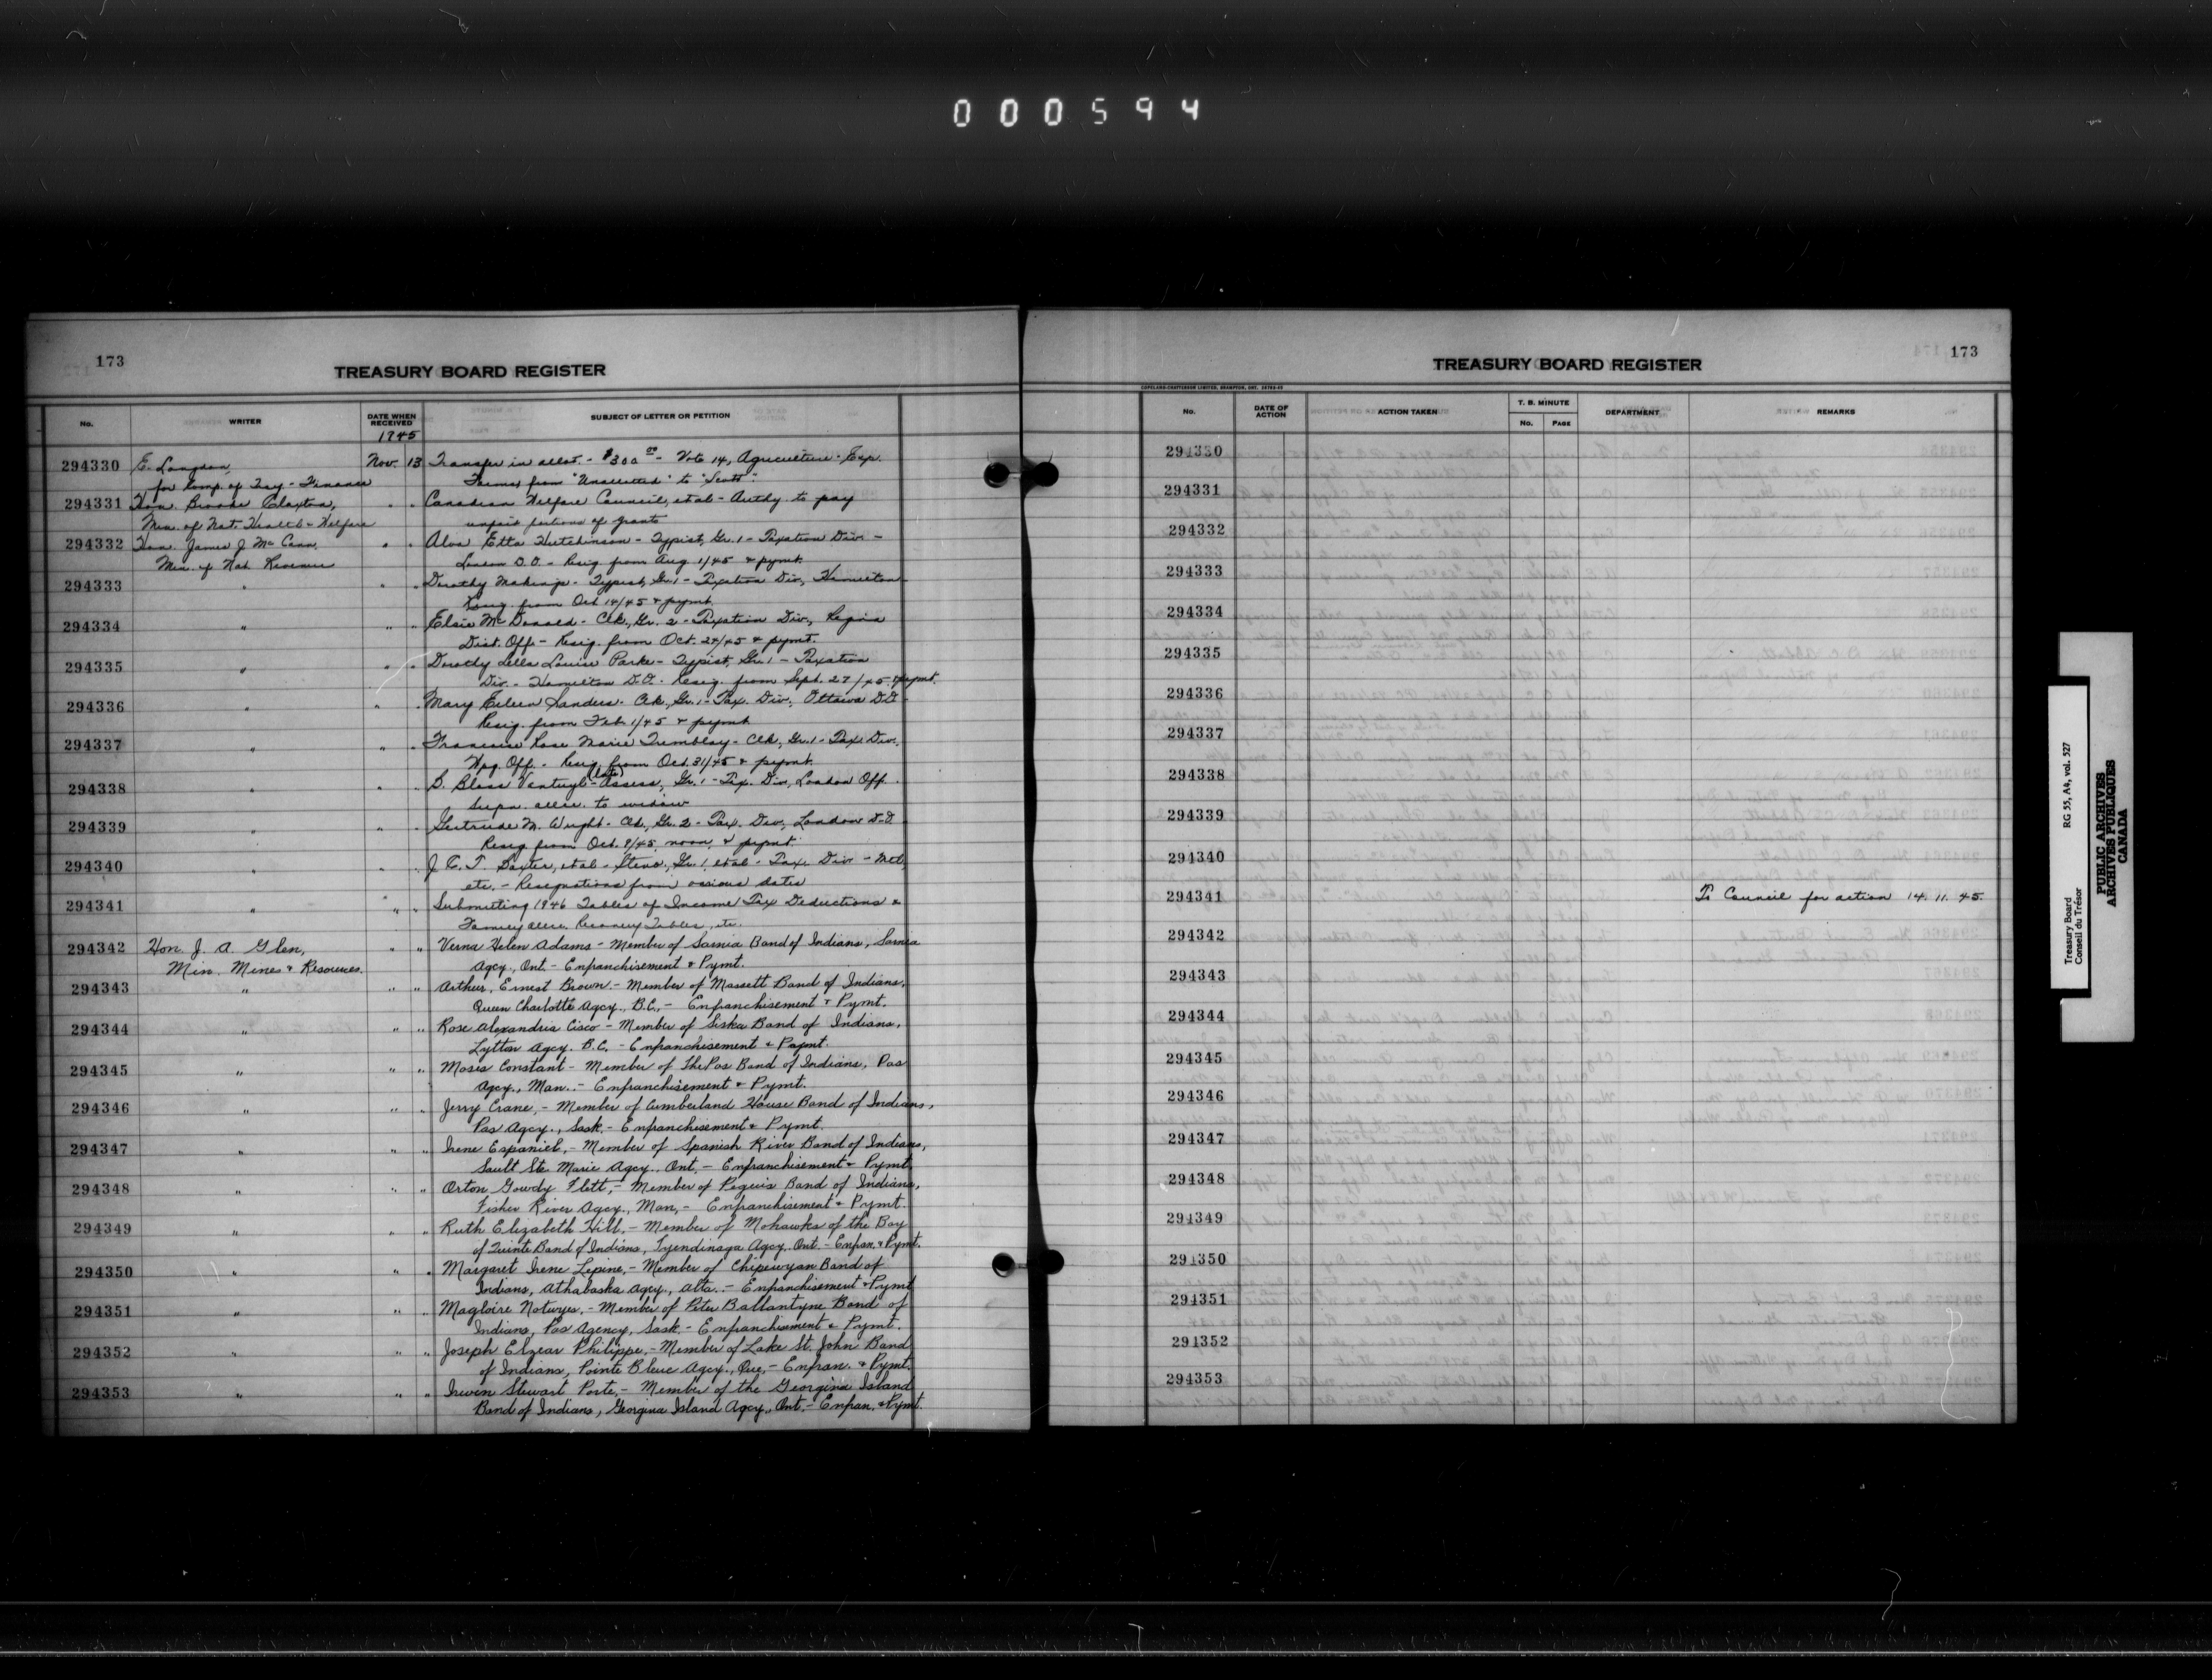 000594
173
TREASURY BOARD REGISTER
No.
WRITER
DATE WHEN RECEIVED
SUBJECT OF LETTER OR PETITION
1945
294330 E. Langdon, Nov. 13 Transfer in allot. - $300.00 - Vote 14, Agriculture - Exp.
for Comp. of Trsy - Finance Farms from "Unallotted" to "Scott".
294331 Hon. Brooke Claxton, " " Canadian Welfare Council, et al - Authy. to pay
Min. of Nat. Health & Welfare unpaid portions of grants
294332 Hon. James J. McCann, " " Alva Etta Hutchinson - Typist, Gr. 1 - Taxation Div. -
Min. of Nat. Revenue London D.O. - Resig. from Aug 1/45 & pymt.
294333 " " " Dorothy Makings - Typist, Gr. 1 - Taxation Div., Hamilton
Resig. from Oct 14/45 & pymt.
294334 " " " Elsie McDonald - Clk., Gr. 2 - Taxation Div., Regina
Dist. Off. - Resig. from Oct. 24/45 & pymt.
294335 " " " Dorothy Lella Louise Parke - Typist, Gr. 1 - Taxation
Div. - Hamilton D.O. - Resig. from Sept. 27/45 & pymt.
294336 " " " Mary Eileen Sanders - Clk., Gr. 1 - Tax. Div., Ottawa D.O.
Resig. from Feb. 1/45 & pymt.
294337 " " " Francoise Rose Marie Tremblay - Clk., Gr. 1 - Tax. Div.
Wpg. Off. - Resig. from Oct. 31/45 & pymt.
294338 " " " (late) - Assess., Gr. 1 - Tax. Div., London Off.
Supn. allce. to widow
294339 " " " Gertrude M. Wright - Clk., Gr. 2 - Tax. Div., London D.O.
Resig. from Oct. 9/45, noon, & pymt.
294340 " " " J. E. T. Baxter, et al - Steno., Gr. 1, et al - Tax. Div. - Mtl,
etc. - Resignations from various dates
294341 " " " Submitting 1946 Tables of Income Tax Deductions &
Family allce. Recovery Tables, etc.
294342 Hon. J. A. Glen, " " Verna Helen Adams - Member of Sarnia Band of Indians, Sarnia
Min. Mines & Resources. Agcy., Ont. - Enfranchisement & Pymt.
294343 " " " Arthur Ernest Brown. - Member of Massett Band of Indians,
Queen Charlotte Agcy., B.C., - Enfranchisement & Pymt.
294344 " " " Rose Alexandria Cisco - Member of Siska Band of Indians,
Lytton Agcy. B.C. - Enfranchisement & Paymt.
294345 " " " Moses Constant - Member of The Pas Band of Indians, Pas
Agcy., Man. - Enfranchisement & Pymt.
294346 " " " Jerry Crane, - Member of Cumberland House Band of Indians,
Pas Agcy., Sask. - Enfranchisement & Pymt.
294347 " " " Irene Espaniel, - Member of Spanish River Band of Indians,
Sault Ste. Marie Agcy., Ont. - Enfranchisement & Pymt.
294348 " " " Orton Gowdy Flett, - Member of Peguis Band of Indians,
Fisher River Agcy., Man, - Enfranchisement & Pymt.
294349 " " " Ruth Elizabeth Hill, - Member of Mohawks of the Bay
of Quinte Band of Indians, Tyendinaga Agcy. Ont. - Enfran. & Pymt.
294350 " " " Margaret Irene Lepine, - Member of Chipewyan Band of
Indians, Athabaska Agcy., Alta. - Enfranchisement & Pymt
294351 " " " Magloire Notwyes, - Member of Peter Ballantyne Band of
Indians, Pas Agency, Sask. - Enfranchisement & Pymt.
294352 " " " Joseph Elzear Philippe, - Member of Lake St. John Band
of Indians, Pointe Bleue Agcy., Que, - Enfran. & Pymt.
294353 " " " Irwin Stewart Porte, - Member of the Georgina Island
Band of Indians, Georgina Island Agcy., Ont. - Enfran. & Pymt.
173
TREASURY BOARD REGISTER
COPELAND-CHATTERSON LIMITED, BRAMPTON, ONT.
No.
DATE OF ACTION
ACTION TAKEN
T. B. MINUTE
No.
PAGE
DEPARTMENT
REMARKS
294330
294331
294332
294333
294334
294335
294336
294337
294338
294339
294340
294341 To Council for action 14.11.45.
294342
294343
294344
294345
294346
294347
294348
294349
294350
294351
294352
294353
Treasury Board RG 55, A4, vol. 527
Conseil du Trésor
PUBLIC ARCHIVES
ARCHIVES PUBLIQUES
CANADA